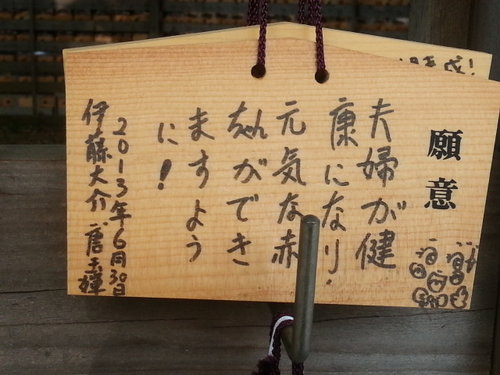 願意
夫婦が健
康になり、
元気な赤
ちゃんができ
ますよう
に!
2013年6月30日
伊藤大介 唐玉瑋